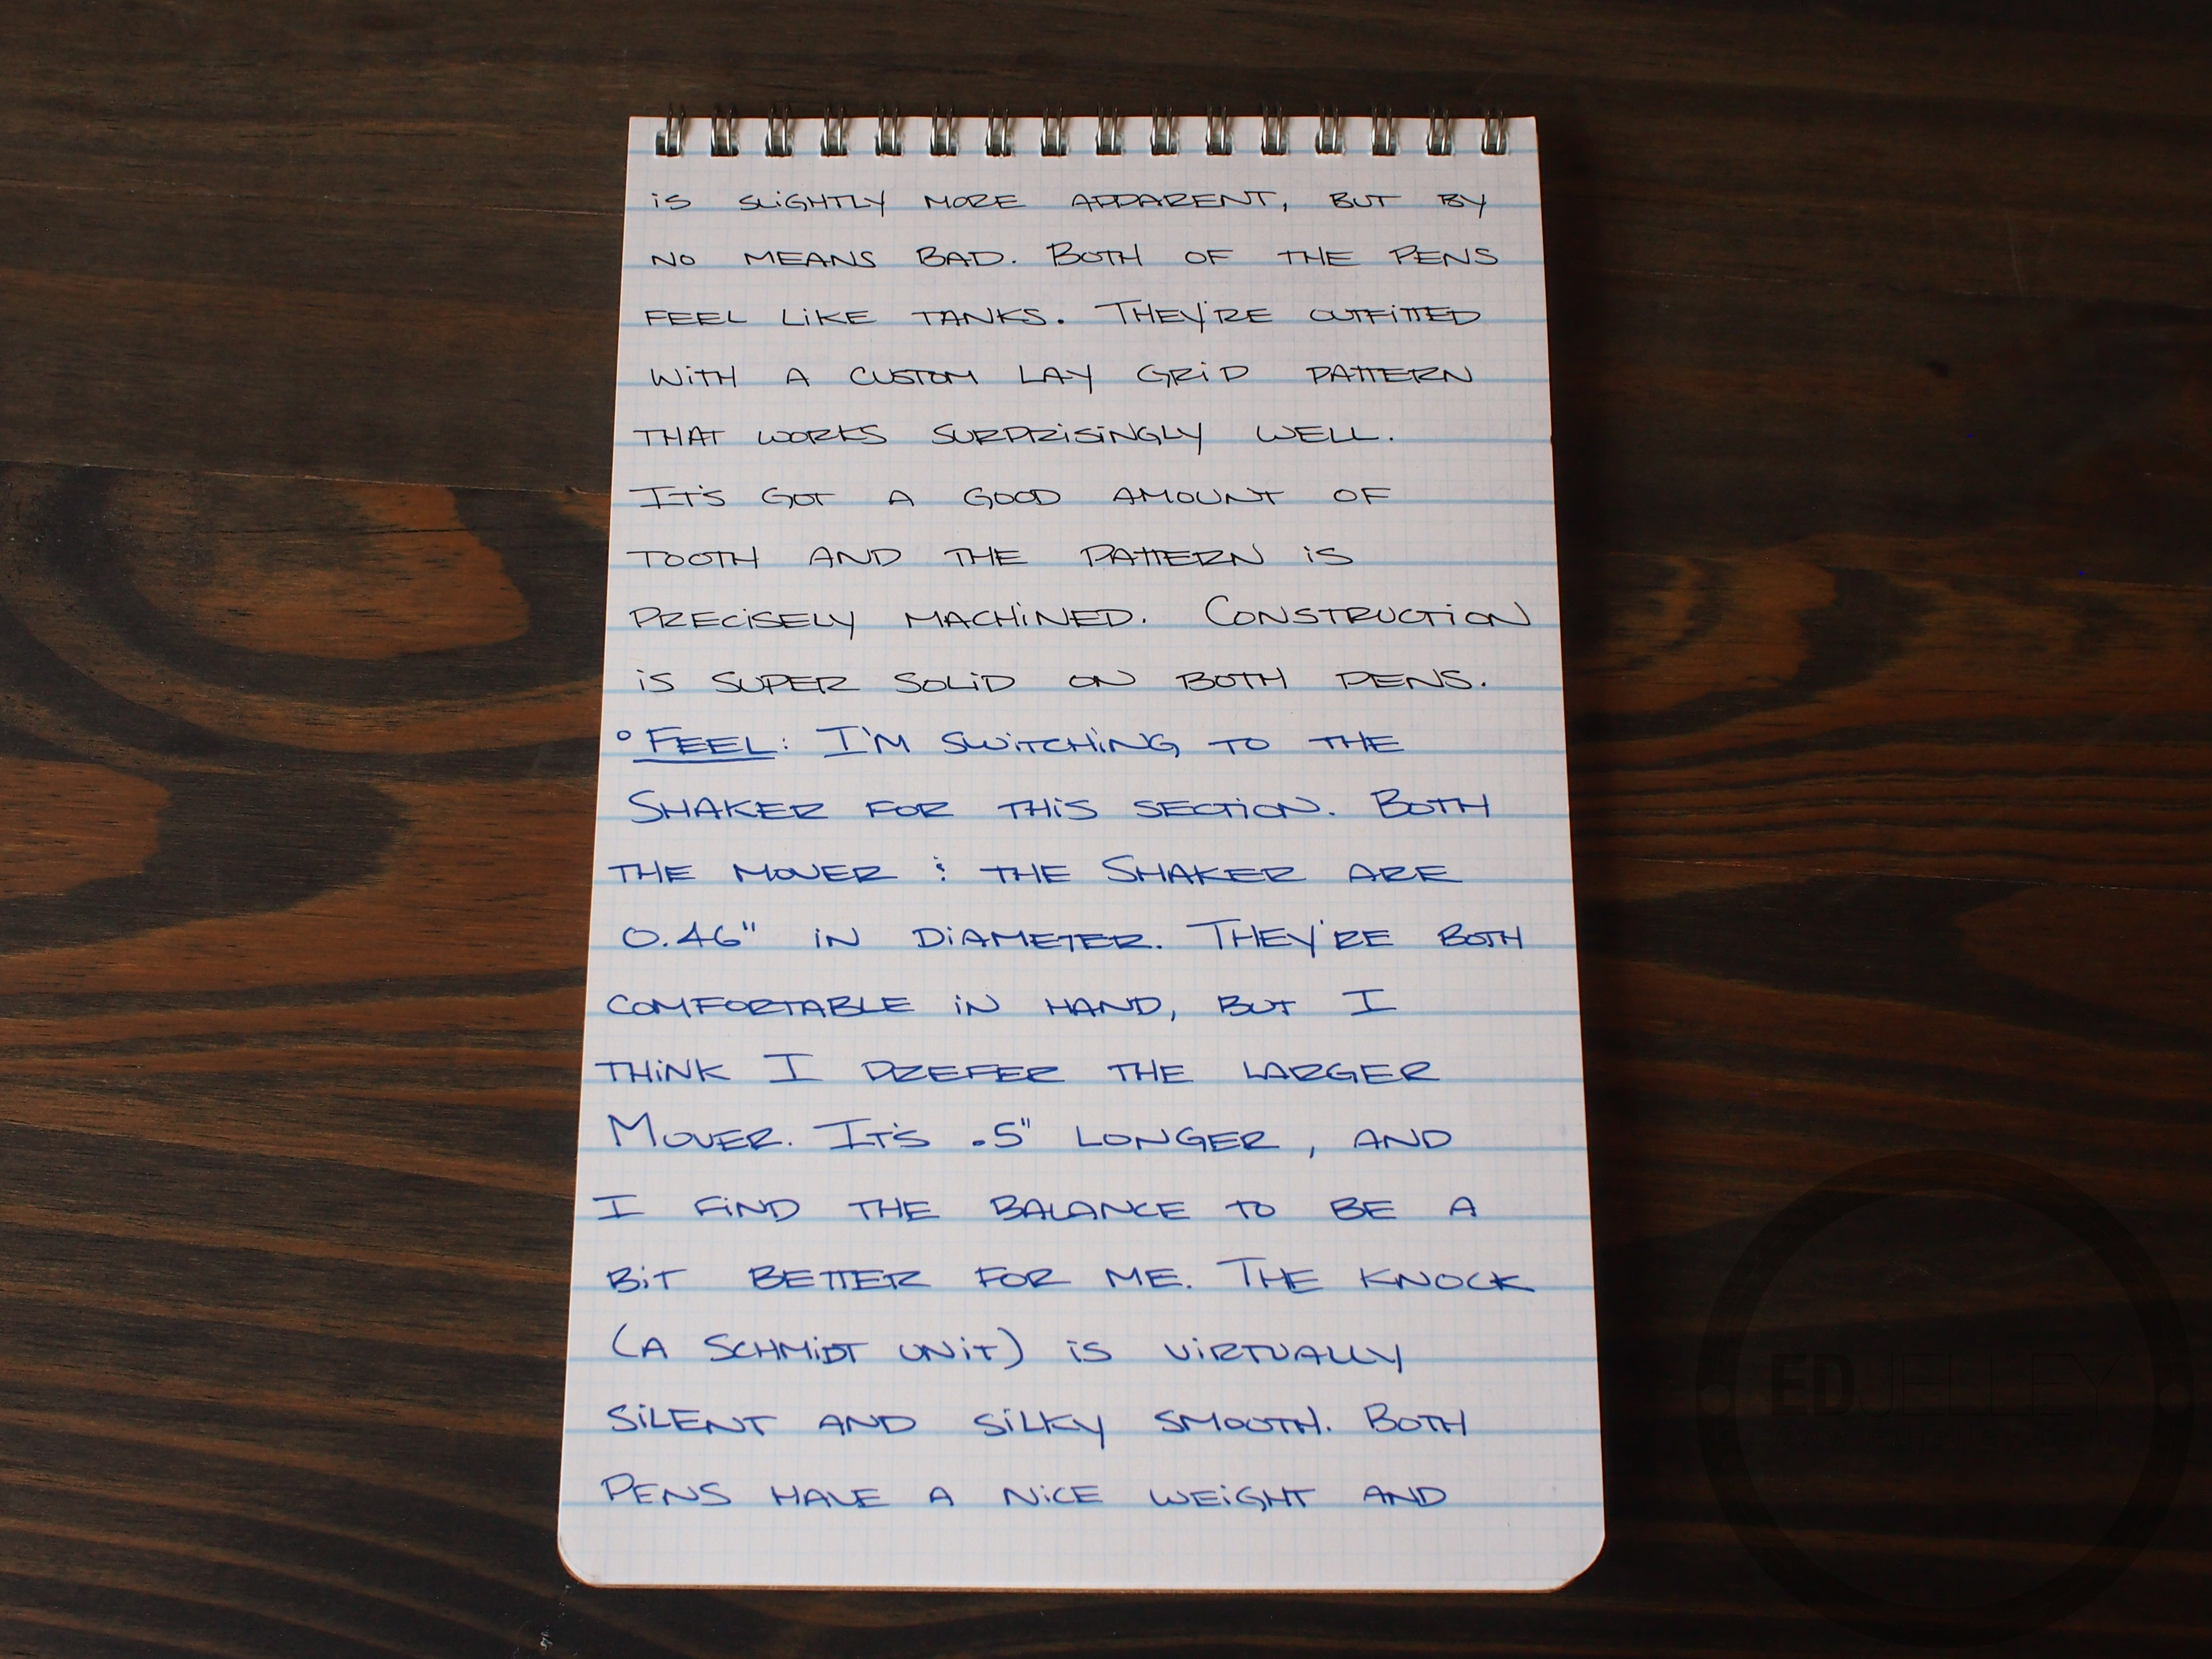 iS SLiGHTLY MORE APPARENT, BUT BY
NO MEANS BAD. BOTH OF THE PENS
FEEL LiKE TANKS. THEY'RE OUTFiTTED
WiTH A CUSTOM LAY GRiD PATTERN
THAT WORKS SURPRiSiNGLY WELL.
IT'S GOT A GOOD AMOUNT OF
TOOTH AND THE PATTERN iS
PRECiSELY MACHiNED. CONSTRUCTiON
iS SUPER SOLiD ON BOTH PENS.
° FEEL: I'M SWiTCHiNG TO THE
SHAKER FOR THiS SECTiON. BOTH
THE MOVER & THE SHAKER ARE
0.46" iN DiAMETER. THEY'RE BOTH
COMFORTABLE iN HAND, BUT I
THiNK I PREFER THE LARGER
MOVER. IT'S .5" LONGER, AND
I FiND THE BALANCE TO BE A
BiT BETTER FOR ME. THE KNOCK
(A SCHMiDT UNiT) iS ViRTUALLY
SiLENT AND SiLKY SMOOTH. BOTH
PENS HAVE A NiCE WEiGHT AND
EDJELLEY